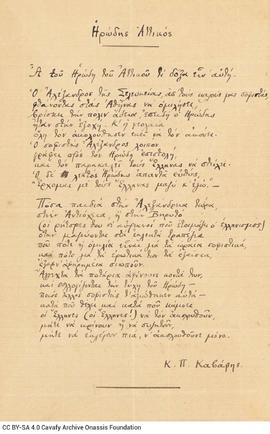 Ηρώδης Αττικός
Α του Ηρώδη του Αττικού τι δόξα είν' αυτή.
Ο Αλέξανδρος της Σελευκείας, απ' τους καλούς μας σοφιστάς,
φθάνοντας στας Αθήνας να ομιλήση,
βρίσκει την πόλιν άδεια, επειδή ο Ηρώδης
ήταν στην εξοχή. Κ' η νεολαία
όλη τον ακολούθησεν εκεί να τον ακούει.
Ο σοφιστής Αλέξανδρος λοιπόν
γράφει προς τον Ηρώδη επιστολή,
και τον παρακαλεί τους Έλληνας να στείλει.
Ο δε λεπτός Ηρώδης απαντά ευθύς,
«Έρχομαι με τους Έλληνας μαζύ κ' εγώ.» —
Πόσα παιδιά στην Αλεξάνδρεια τώρα,
στην Αντιόχεια, ή στην Βηρυτό
(οι ρήτορές του οι αυριανοί που ετοιμάζει ο ελληνισμός)
όταν μαζεύονται στα εκλεκτά τραπέζια
που πότε η ομιλία είναι για τα ωραία σοφιστικά,
και πότε για τα ερωτικά των τα εξαίσια,
έξαφν' αφηρημένα σιωπούν.
Άγγιχτα τα ποτήρια αφίνουνε κοντά των,
και συλλογίζονται την τύχη του Ηρώδη —
ποιος άλλος σοφιστής τ' αξιώθηκεν αυτά; —
κατά που θέλει και κατά που κάμνει
οι Έλληνες (οι Έλληνες!) να τον ακολουθούν,
μήτε να κρίνουν ή να συζητούν,
μήτε να εκλέγουν πια, ν' ακολουθούνε μόνο.
Κ. Π. Καβάφης
CC BY-SA 4.0 Cavafy Archive Onassis Foundation